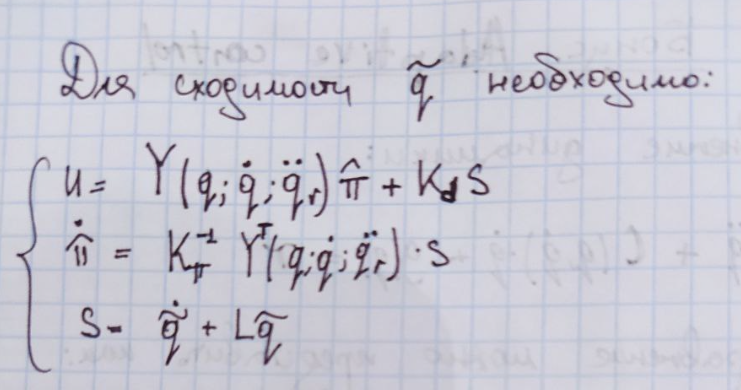 Для сходимости q̃ необходимо:
u = Y(q; q̇; q̈ᵣ) π̂ + K_d S
π̂̇ = K_π⁻¹ Yᵀ(q; q̇; q̈ᵣ) · S
S = q̃̇ + Lq̃